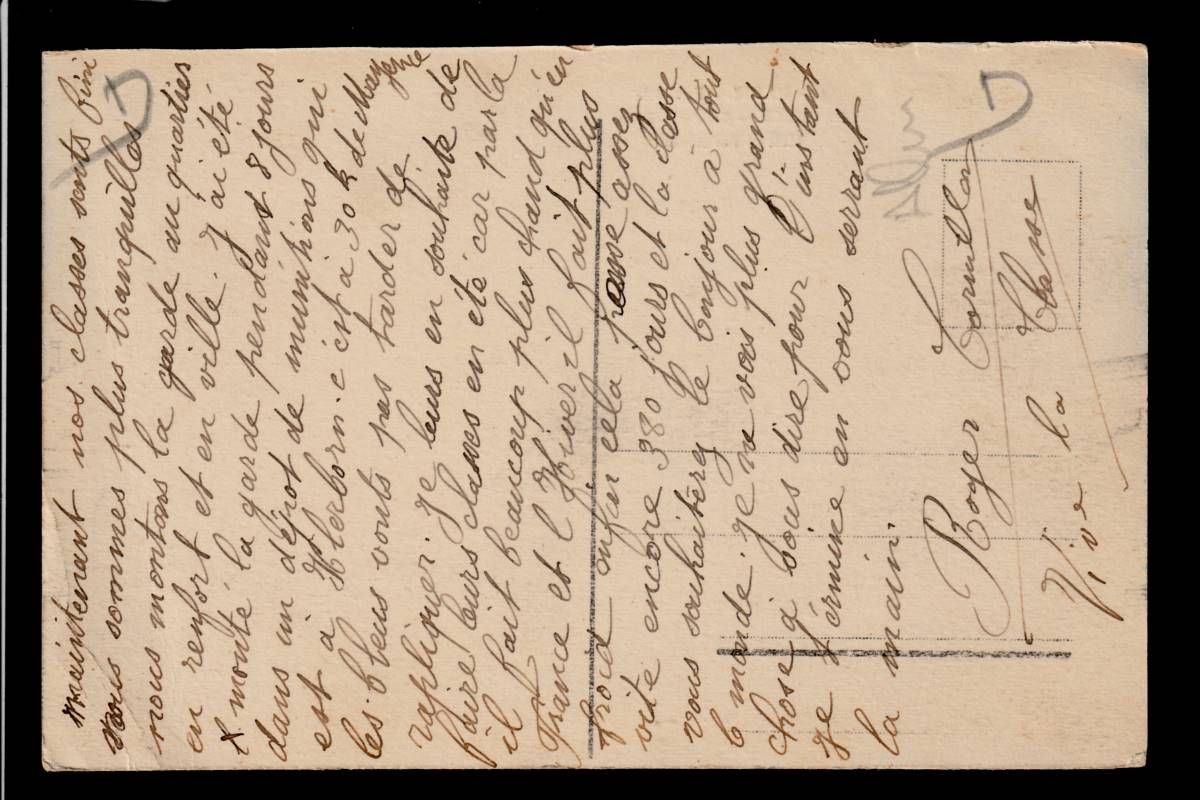 maintenant nos classes sonts fini
nous sommes plus tranquilles
nous montons la garde au quartier
en renfort et en ville. J'ai été
monté la garde pendant 8 jours
dans un dépot de munitions qui
est à Holerborn. c'est à 30 k de Mayence
les bleus vonts pas tarder de
rapliquer. Je leurs en souhaite de
faire leurs classes en été car par la
il fait beaucoup plus chaud qu'en
France et l'Hiver il fait plus
froid enfin cela passe assez
vite encore 380 jours et la classe
vous souhaiterez le bonjour à tout
le monde je ne vois plus grand
chose à vous dire pour l'instant
je termine en vous serrant
la main.
Roger
Vive la Classe